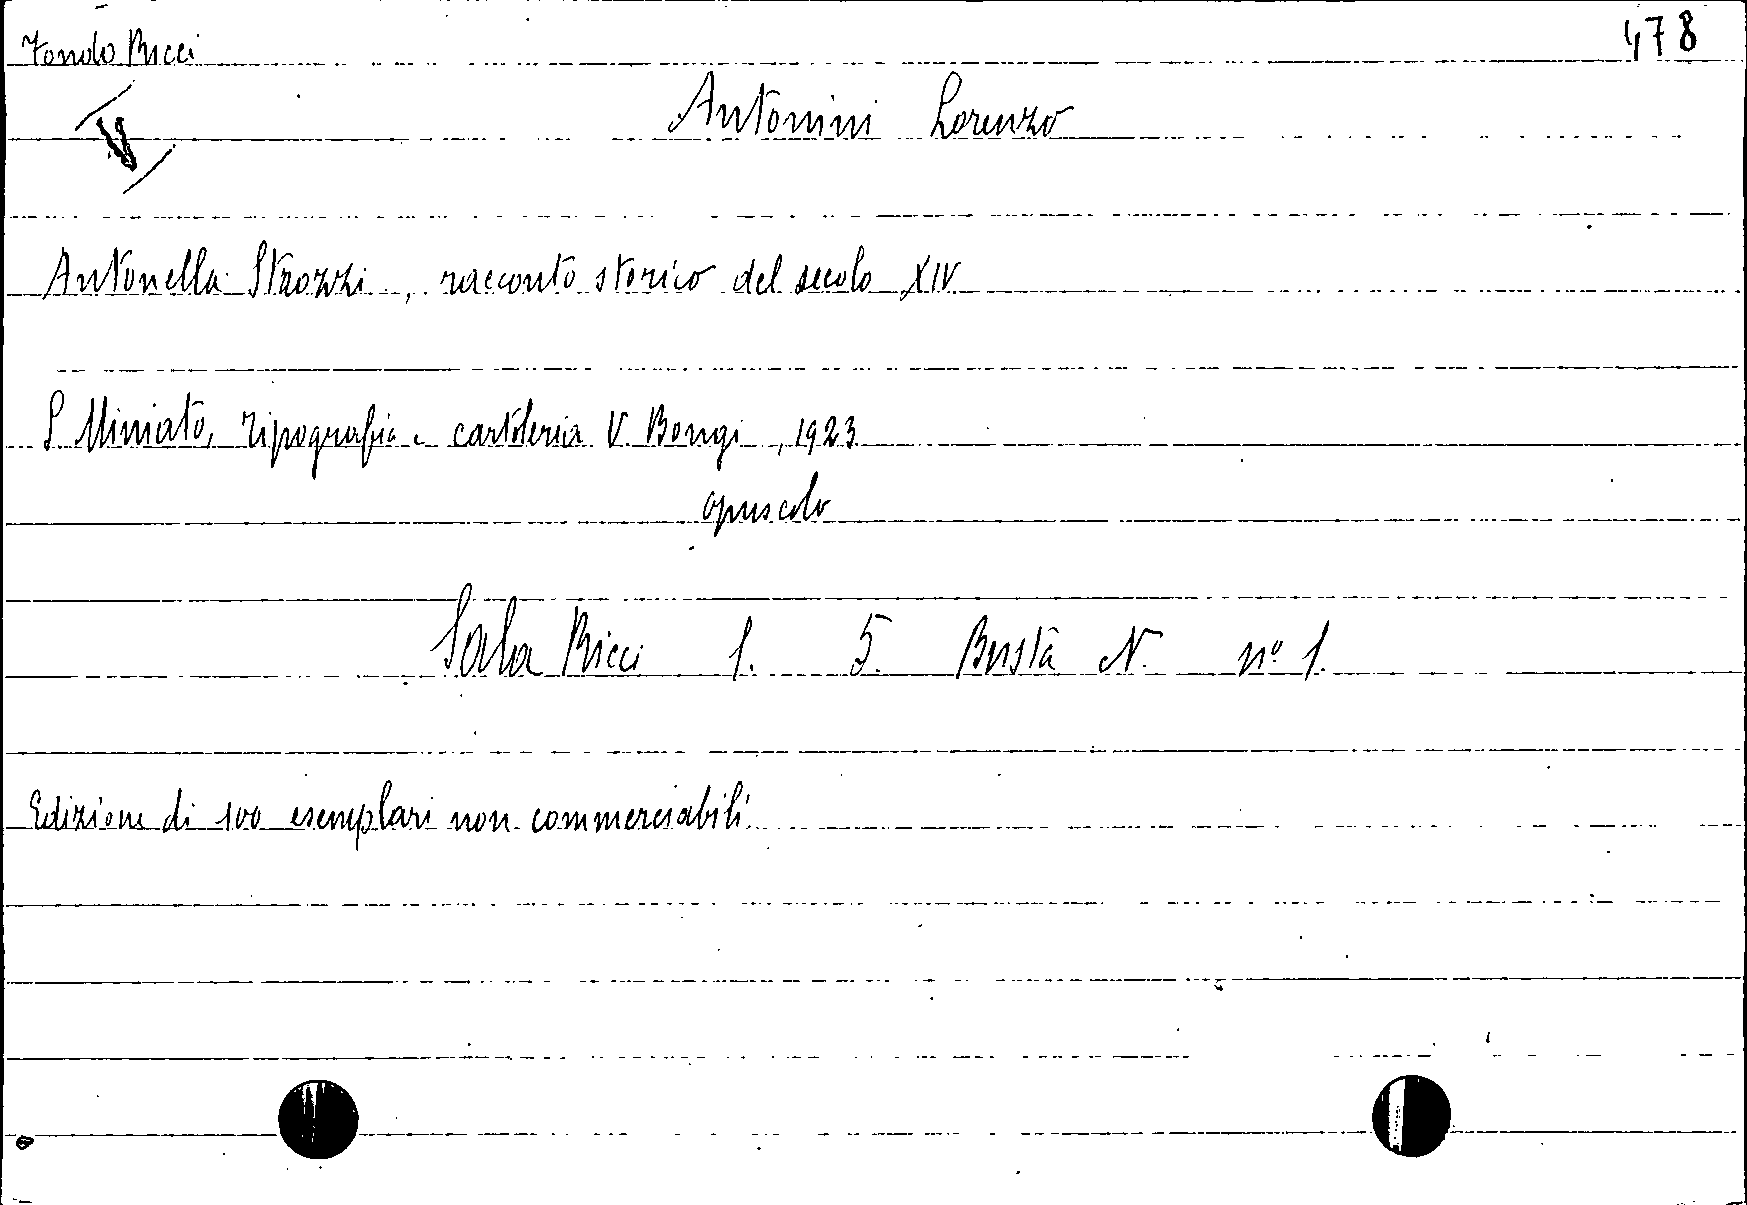 Fondo Ricci
478
Antonini Lorenzo
V
Antonella Strozzi, racconto storico del secolo XIV
S Miniato, Tipografia e cartoleria V. Bongi, 1923
opuscolo
Sala Ricci 1. 5. Busta N. nº 1.
Edizione di 100 esemplari non commerciabili